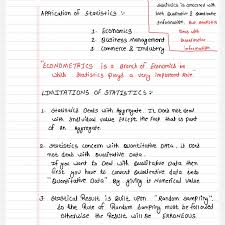 Statistics is concerned with
both Qualitative & Quantitative
Information. But Statistics
Deals with
Quantitative
Information.
Application of Statistics :-
1. Economics
2. Business Management
3. Commerce & Industry
"ECONOMETRICS is a Branch of Economics in
which Statistics plays a very important Role
LIMITATIONS OF STATISTICS :-
1. Statistics Deals with Aggregate. It Does not deal
with Individual value except the fact that is part
of an aggregate.
2. Statistics concern with Quantitative Data. it Does
not deals with Qualitative Data.
If you want to Deal with Qualitative data then
first you have to convert Qualitative data into
"Quantitative Data" By giving it Numerical value
3. Statistical Result is built upon "Random Sampling".
So the Rule of Random Sampling must be followed
otherwise the Result will be ERRONEOUS.